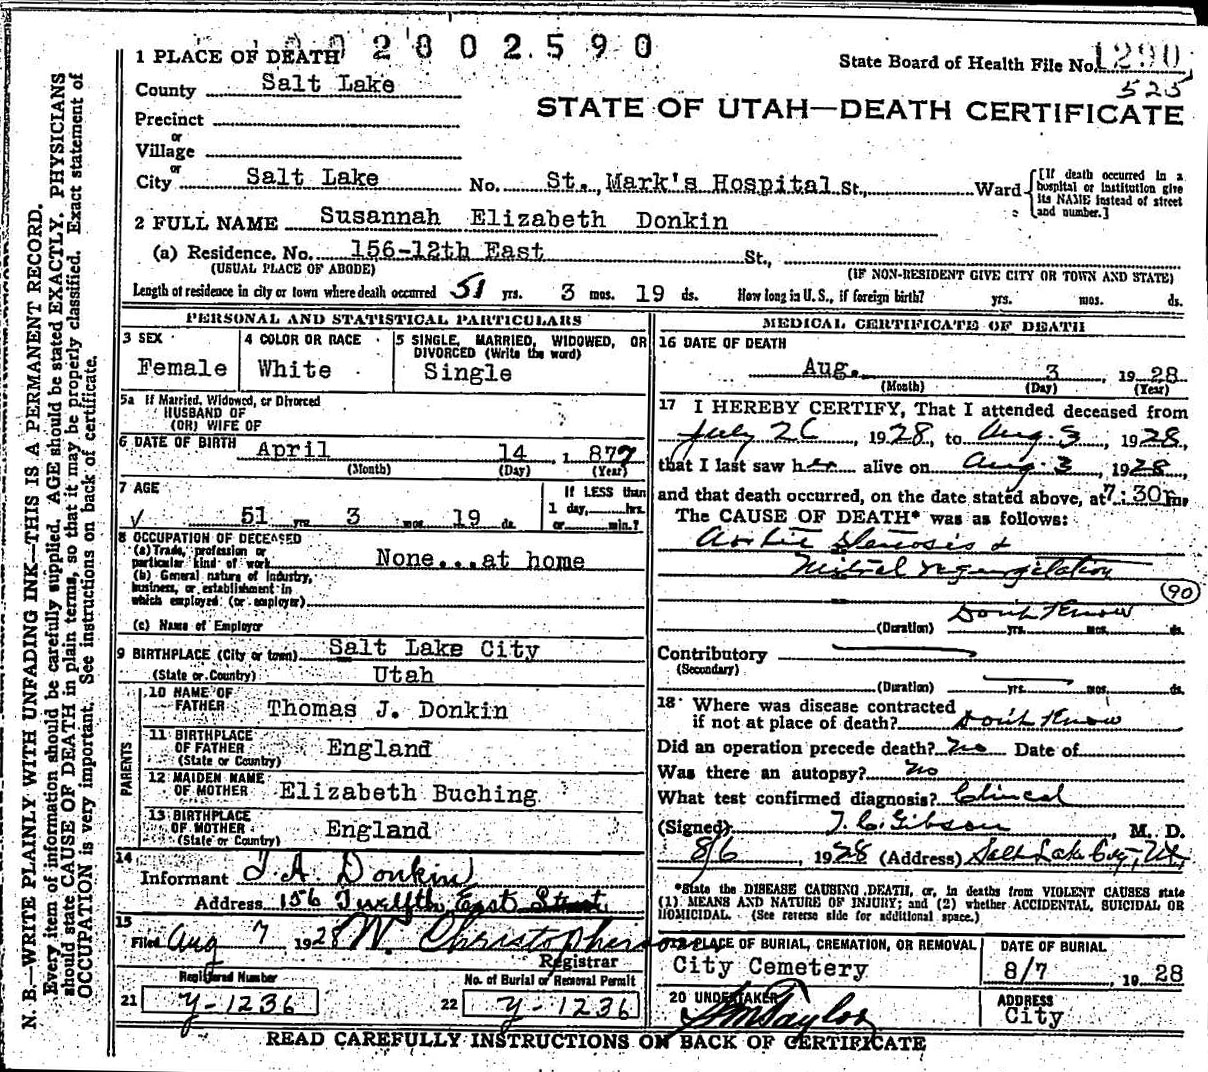 002002590
1290
525
1 PLACE OF DEATH
State Board of Health File No.
County Salt Lake
STATE OF UTAH—DEATH CERTIFICATE
Precinct
or
Village
or
City Salt Lake No. St. Mark's Hospital St., Ward
[If death occurred in a hospital or institution give its NAME instead of street and number.]
2 FULL NAME Susannah Elizabeth Donkin
(a) Residence. No. 156-12th East St.,
(USUAL PLACE OF ABODE) (IF NON-RESIDENT GIVE CITY OR TOWN AND STATE)
Length of residence in city or town where death occurred 51 yrs. 3 mos. 19 ds. How long in U. S., if foreign birth? yrs. mos. ds.
PERSONAL AND STATISTICAL PARTICULARS
3 SEX
Female
4 COLOR OR RACE
White
5 SINGLE, MARRIED, WIDOWED, OR
DIVORCED (Write the word)
Single
5a If Married, Widowed, or Divorced
HUSBAND OF
(OR) WIFE OF
6 DATE OF BIRTH April 14 1877
(Month) (Day) (Year)
7 AGE
51 yrs. 3 mos. 19 ds.
If LESS than
1 day, hrs.
or min.?
8 OCCUPATION OF DECEASED
(a) Trade, profession or
particular kind of work None...at home
(b) General nature of Industry,
business, or establishment in
which employed (or employer)
(c) Name of Employer
9 BIRTHPLACE (City or town) Salt Lake City
(State or Country) Utah
PARENTS
10 NAME OF
FATHER Thomas J. Donkin
11 BIRTHPLACE
OF FATHER England
(State or Country)
12 MAIDEN NAME
OF MOTHER Elizabeth Buching
13 BIRTHPLACE
OF MOTHER England
(State or Country)
14
Informant T. A. Donkin
Address 156 Twelfth East Street
15
Filed Aug 7 1928 W. Christopherson
Registrar
Registered Number
21 y-1236
No. of Burial or Removal Permit
22 y-1236
MEDICAL CERTIFICATE OF DEATH
16 DATE OF DEATH
Aug. 3, 1928
(Month) (Day) (Year)
17 I HEREBY CERTIFY, That I attended deceased from
July 26, 1928, to Aug. 3, 1928,
that I last saw her alive on Aug. 3, 1928,
and that death occurred, on the date stated above, at 7:30 m.
The CAUSE OF DEATH* was as follows:
Aortic Stenosis &
Mitral regurgitation
90
Don't Know
(Duration) yrs. mos. ds.
Contributory
(Secondary)
(Duration) yrs. mos. ds.
18 Where was disease contracted
if not at place of death? Don't Know
Did an operation precede death? No Date of
Was there an autopsy? No
What test confirmed diagnosis? Clinical
(Signed) T. C. Gibson, M. D.
8/6, 1928 (Address) Salt Lake City, Ut.
*State the DISEASE CAUSING DEATH, or, in deaths from VIOLENT CAUSES state
(1) MEANS AND NATURE OF INJURY; and (2) whether ACCIDENTAL, SUICIDAL OR
HOMICIDAL. (See reverse side for additional space.)
19 PLACE OF BURIAL, CREMATION, OR REMOVAL
City Cemetery
DATE OF BURIAL
8/7 1928
20 UNDERTAKER
S.M. Taylor
ADDRESS
City
READ CAREFULLY INSTRUCTIONS ON BACK OF CERTIFICATE
N. B.—WRITE PLAINLY WITH UNFADING INK—THIS IS A PERMANENT RECORD.
Every item of information should be carefully supplied. AGE should be stated EXACTLY. PHYSICIANS
should state CAUSE OF DEATH in plain terms, so that it may be properly classified. Exact statement of
OCCUPATION is very important. See instructions on back of certificate.